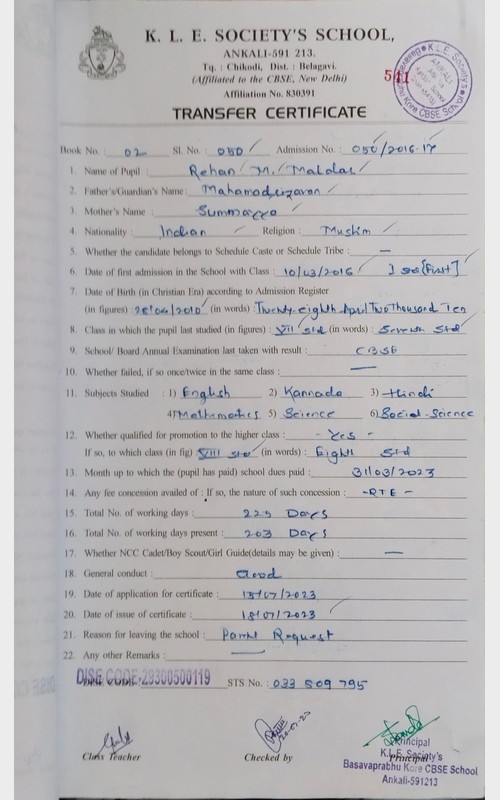 K. L. E. SOCIETY'S SCHOOL,
ANKALI-591 213.
Tq. : Chikodi, Dist. : Belagavi.
(Affiliated to the CBSE, New Delhi)
Affiliation No. 830391
541
TRANSFER CERTIFICATE
Book No. : 02 Sl. No. : 050 Admission No. : 050/2016-17
1. Name of Pupil : Rehan M. Maldar
2. Father's/Guardian's Name :
3. Mother's Name :
4. Nationality : Indian Religion : Muslim
5. Whether the candidate belongs to Schedule Caste or Schedule Tribe : —
6. Date of first admission in the School with Class : 10/03/2016 I std [First]
7. Date of Birth (in Christian Era) according to Admission Register
(in figures) 28/04/2010 (in words) : Twenty eighth April Two Thousand Ten
8. Class in which the pupil last studied (in figures) : VII std (in words) : Seventh Std
9. School/ Board Annual Examination last taken with result : CBSE
10. Whether failed, if so once/twice in the same class : —
11. Subjects Studied : 1) English 2) Kannada 3) Hindi
4) Mathematics 5) Science 6) Social-Science
12. Whether qualified for promotion to the higher class : - Yes -
If so, to which class (in fig) VIII std (in words) : Eighth Std
13. Month up to which the (pupil has paid) school dues paid : 31/03/2023
14. Any fee concession availed of : If so, the nature of such concession : -RTE-
15. Total No. of working days : 225 Days
16. Total No. of working days present : 203 Days
17. Whether NCC Cadet/Boy Scout/Girl Guide(details may be given) : —
18. General conduct : Good
19. Date of application for certificate : 13/07/2023
20. Date of issue of certificate : 18/07/2023
21. Reason for leaving the school : Parent Request
22. Any other Remarks : —
DISE CODE-29300500119 STS No. : 033 509 795
Class Teacher Checked by Principal
Principal
K.L.E. Society's
Basavaprabhu Kore CBSE School
Ankali-591213